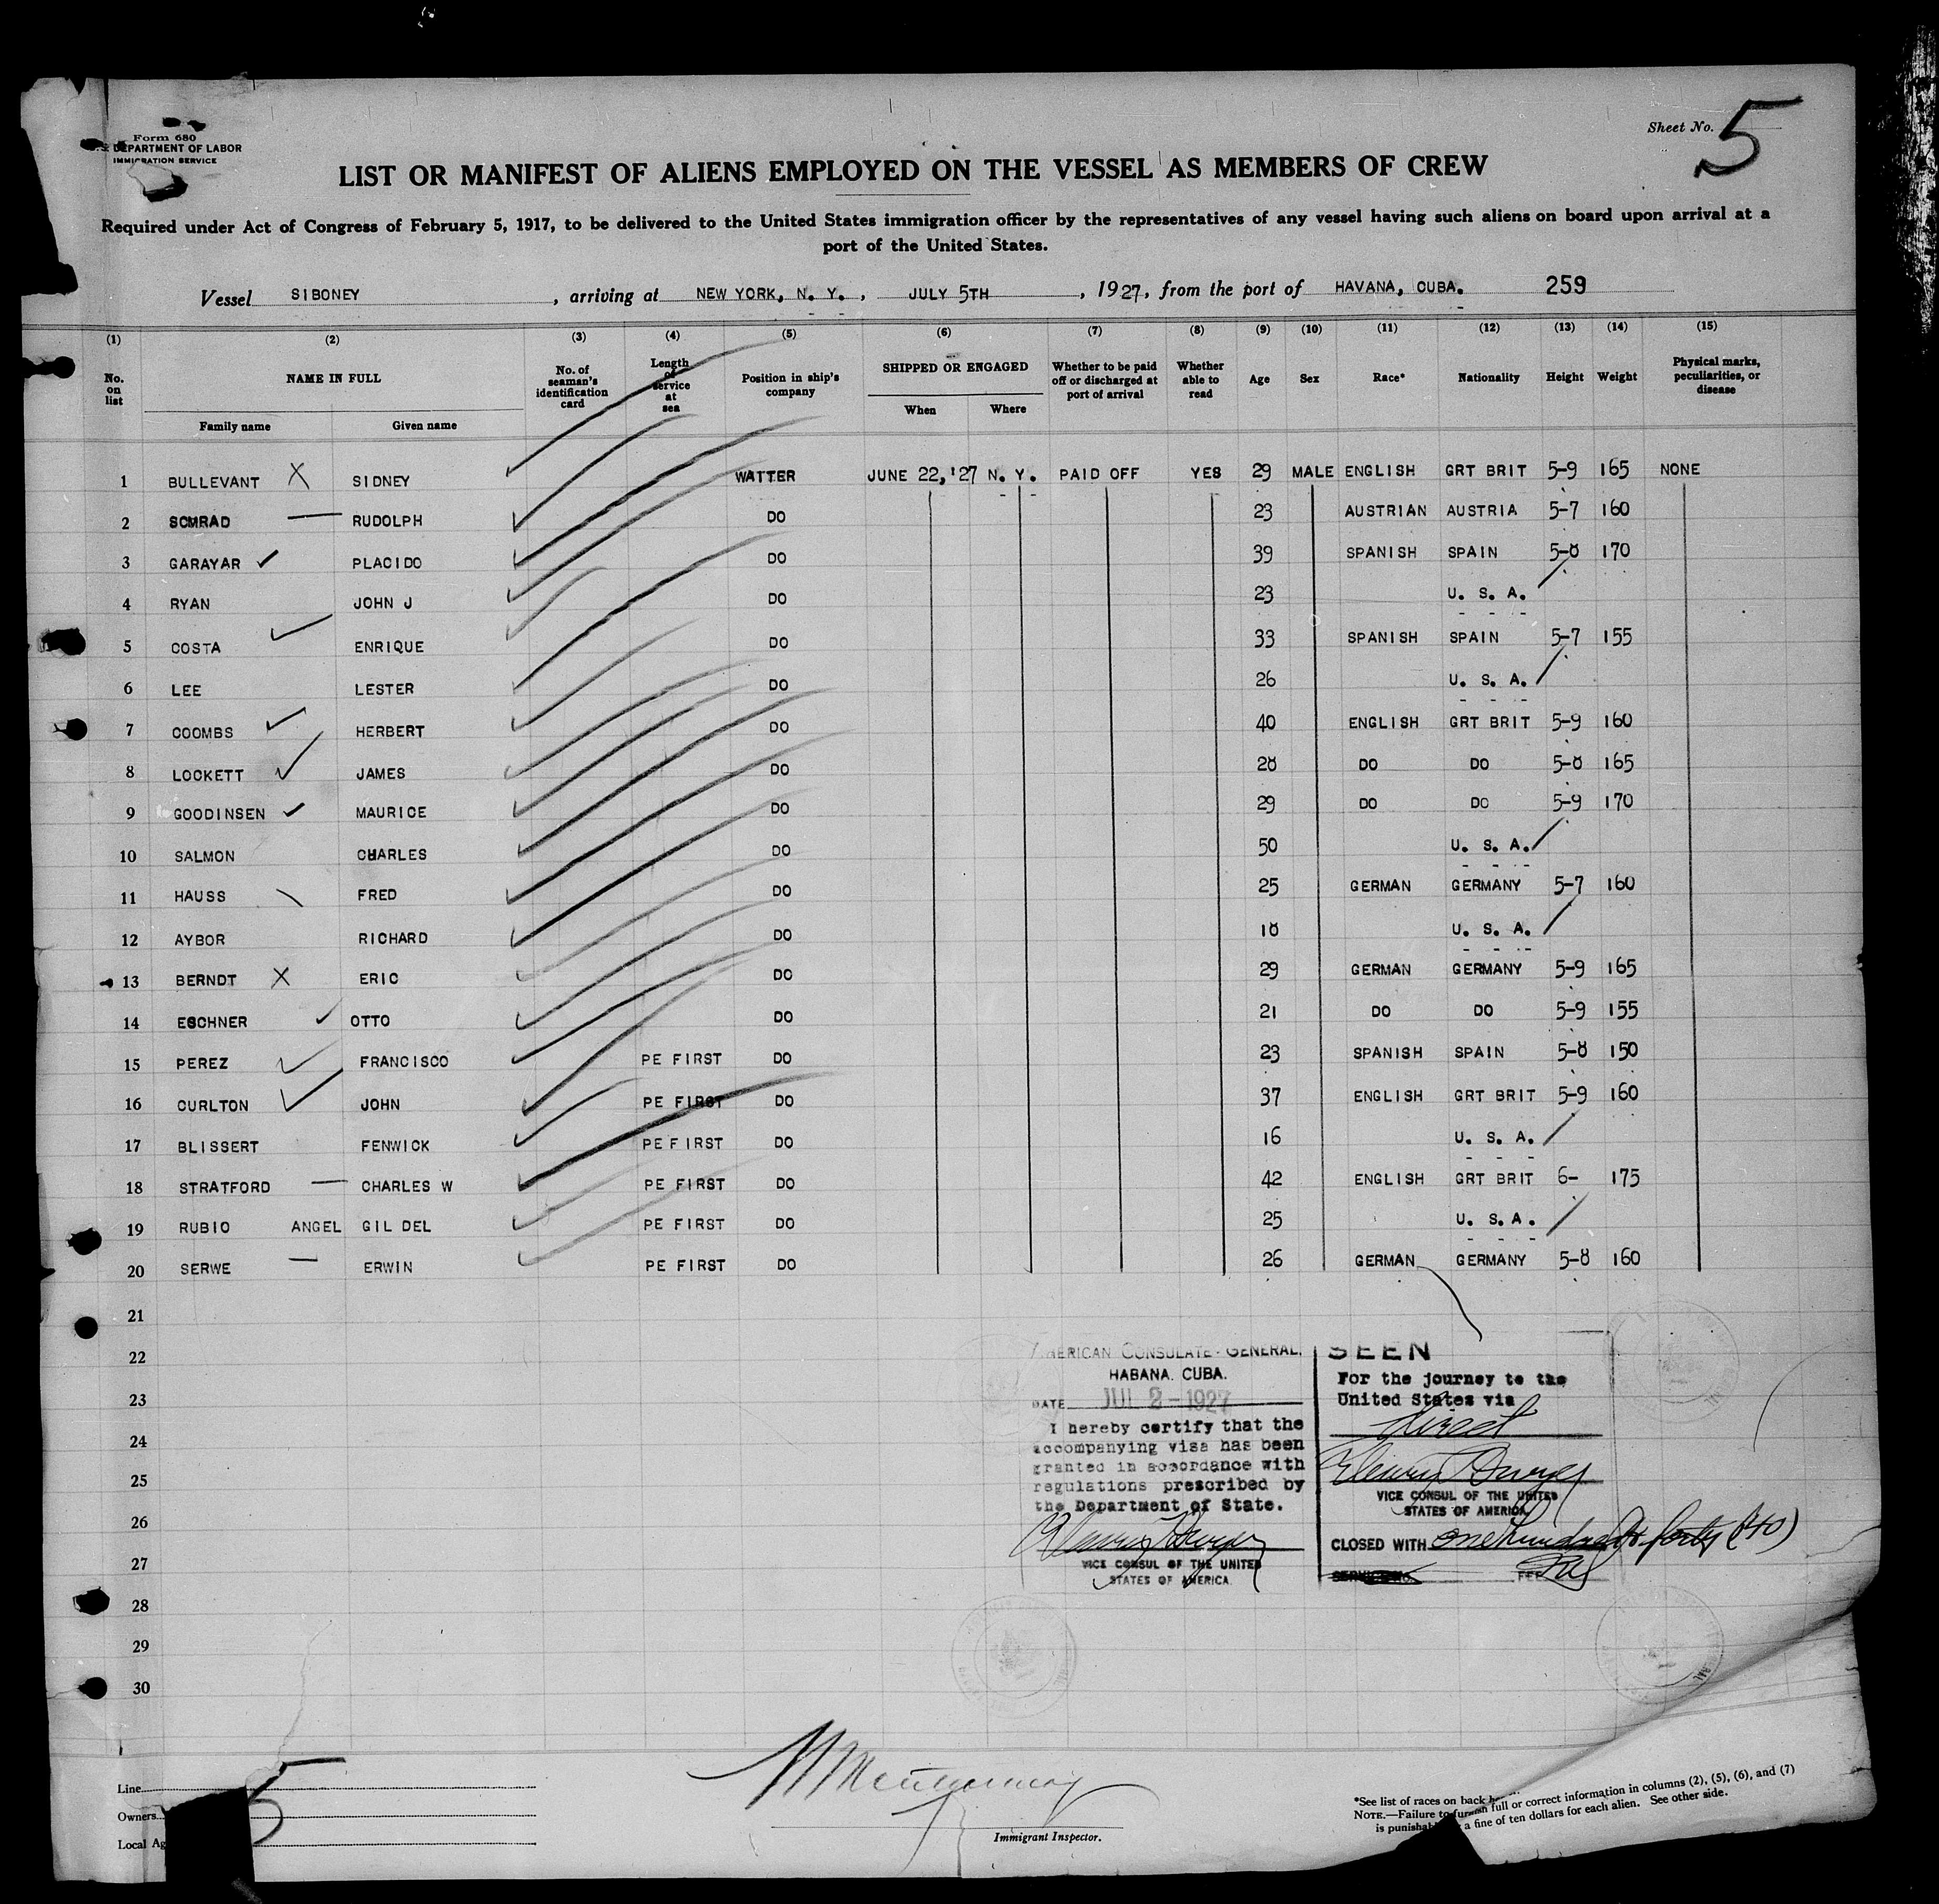 Form 680
DEPARTMENT OF LABOR
IMMIGRATION SERVICE
Sheet No. 5
LIST OR MANIFEST OF ALIENS EMPLOYED ON THE VESSEL AS MEMBERS OF CREW
Required under Act of Congress of February 5, 1917, to be delivered to the United States immigration officer by the representatives of any vessel having such aliens on board upon arrival at a
port of the United States.
Vessel SIBONEY, arriving at NEW YORK, N. Y., JULY 5TH, 1927, from the port of HAVANA, CUBA. 259
(1) (2) (3) (4) (5) (6) (7) (8) (9) (10) (11) (12) (13) (14) (15)
No. on list NAME IN FULL Family name Given name No. of seaman's identification card Length of service at sea Position in ship's company SHIPPED OR ENGAGED When Where Whether to be paid off or discharged at port of arrival Whether able to read Age Sex Race* Nationality Height Weight Physical marks, peculiarities, or disease
1 BULLEVANT X SIDNEY WATTER JUNE 22,'27 N. Y. PAID OFF YES 29 MALE ENGLISH GRT BRIT 5-9 165 NONE
2 SCMRAD RUDOLPH DO 23 AUSTRIAN AUSTRIA 5-7 160
3 GARAYAR PLACIDO DO 39 SPANISH SPAIN 5-8 170
4 RYAN JOHN J DO 23 U. S. A.
5 COSTA ENRIQUE DO 33 SPANISH SPAIN 5-7 155
6 LEE LESTER DO 26 U. S. A.
7 COOMBS HERBERT DO 40 ENGLISH GRT BRIT 5-9 160
8 LOCKETT JAMES DO 28 DO DO 5-8 165
9 GOODINSEN MAURICE DO 29 DO DO 5-9 170
10 SALMON CHARLES DO 50 U. S. A.
11 HAUSS FRED DO 25 GERMAN GERMANY 5-7 160
12 AYBOR RICHARD DO 18 U. S. A.
13 BERNDT X ERIC DO 29 GERMAN GERMANY 5-9 165
14 ESCHNER OTTO DO 21 DO DO 5-9 155
15 PEREZ FRANCISCO PE FIRST DO 23 SPANISH SPAIN 5-8 150
16 CURLTON JOHN PE FIRST DO 37 ENGLISH GRT BRIT 5-9 160
17 BLISSERT FENWICK PE FIRST DO 16 U. S. A.
18 STRATFORD CHARLES W PE FIRST DO 42 ENGLISH GRT BRIT 6- 175
19 RUBIO ANGEL GIL DEL PE FIRST DO 25 U. S. A.
20 SERWE ERWIN PE FIRST DO 26 GERMAN GERMANY 5-8 160
21
22
23
24
25
26
27
28
29
30
AMERICAN CONSULATE-GENERAL,
HABANA. CUBA.
DATE JUL 2-1927
I hereby certify that the
accompanying visa has been
granted in accordance with
regulations prescribed by
the Department of State.
VICE CONSUL OF THE UNITED
STATES OF AMERICA.
SEEN
For the journey to the
United States via
direct
VICE CONSUL OF THE UNITED
STATES OF AMERICA
CLOSED WITH one hundred & forty (140)
FEE
Line
Owners
Local Ag
5
Immigrant Inspector.
*See list of races on back
NOTE.—Failure to furnish full or correct information in columns (2), (5), (6), and (7)
is punishable a fine of ten dollars for each alien. See other side.